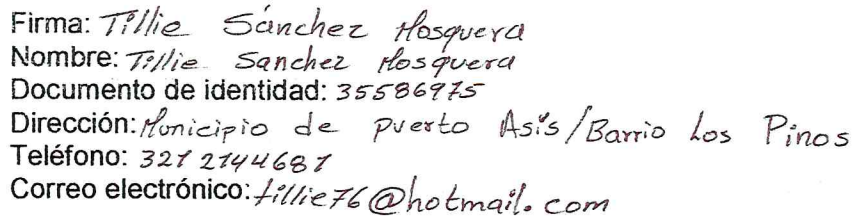 Firma: Tillie Sánchez Mosquera
Nombre: Tillie Sanchez Mosquera
Documento de identidad: 35586975
Dirección: Municipio de puerto Asís/Barrio Los Pinos
Teléfono: 321 2144681
Correo electrónico: tillie76@hotmail.com